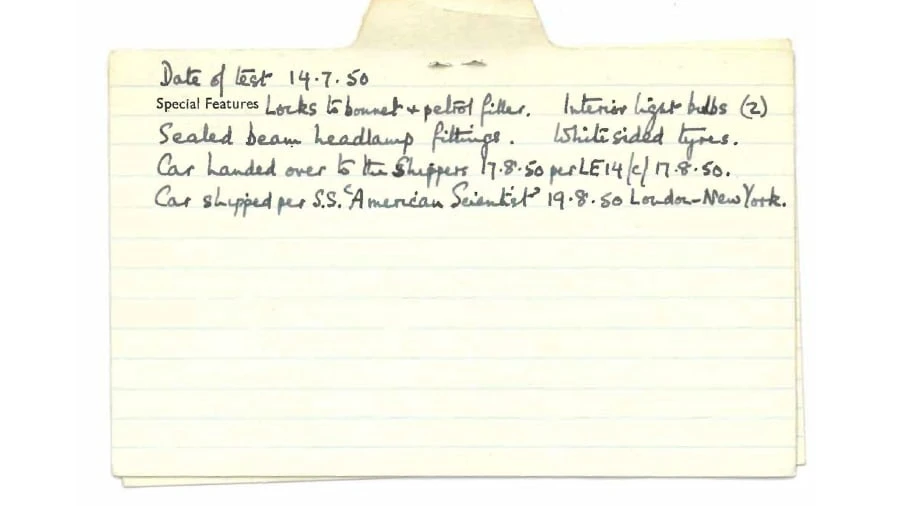 Date of test 14.7.50
Special Features Locks to bonnet + petrol filler. Interior light bulbs (2)
Sealed beam headlamp fittings. White sided tyres.
Car handed over to the Shippers 17.8.50 per LE14/c/ 17.8.50.
Car shipped per S.S. "American Scientist" 19.8.50 London-New York.